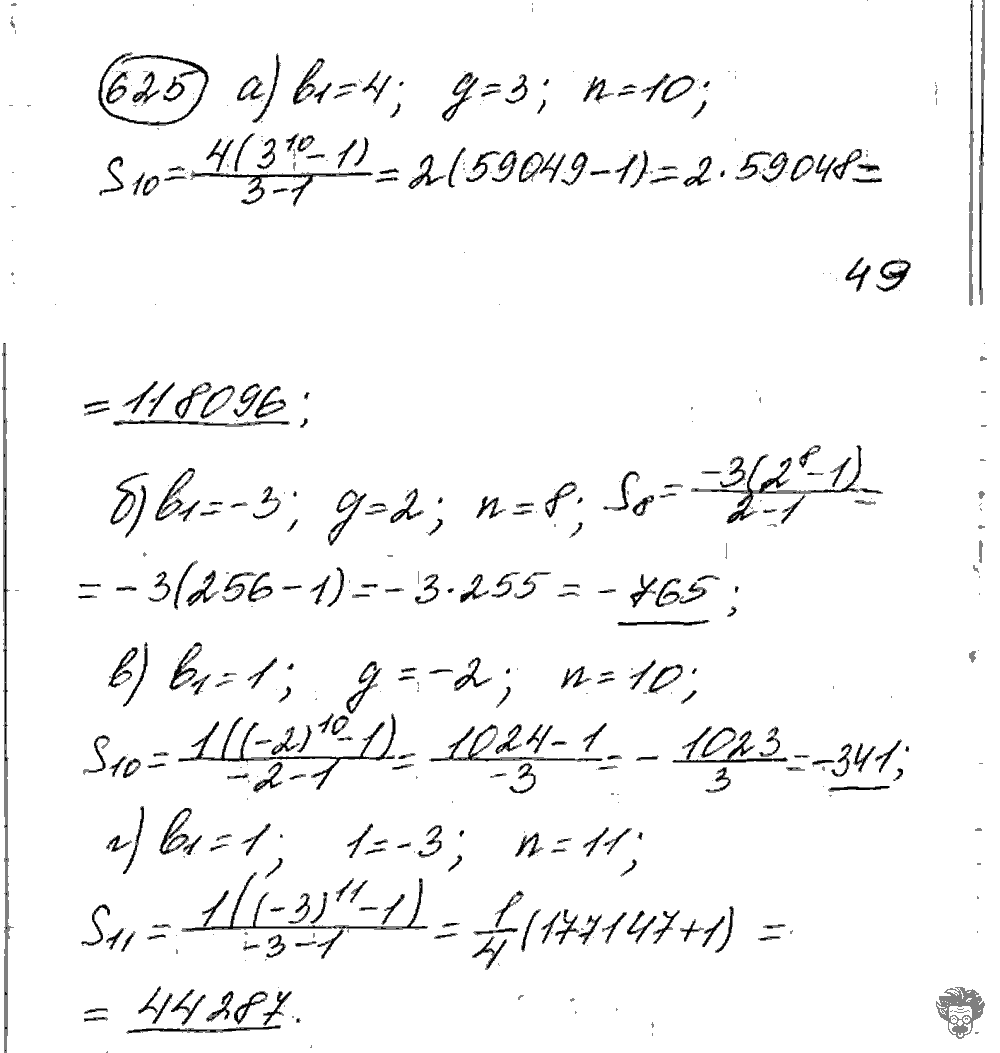 625 а) b₁=4; g=3; n=10;
S₁₀ = 4(3¹⁰-1)/3-1 = 2(59049-1) = 2·59048 =
49
= 118096;
б) b₁=-3; g=2; n=8; S₈ = -3(2⁸-1)/2-1 =
= -3(256-1) = -3·255 = -765;
в) b₁=1; g=-2; n=10;
S₁₀ = 1((-2)¹⁰-1)/-2-1 = 1024-1/-3 = - 1023/3 = -341;
г) b₁=1; 1=-3; n=11;
S₁₁ = 1((-3)¹¹-1)/-3-1 = 1/4(177147+1) =
= 44287.